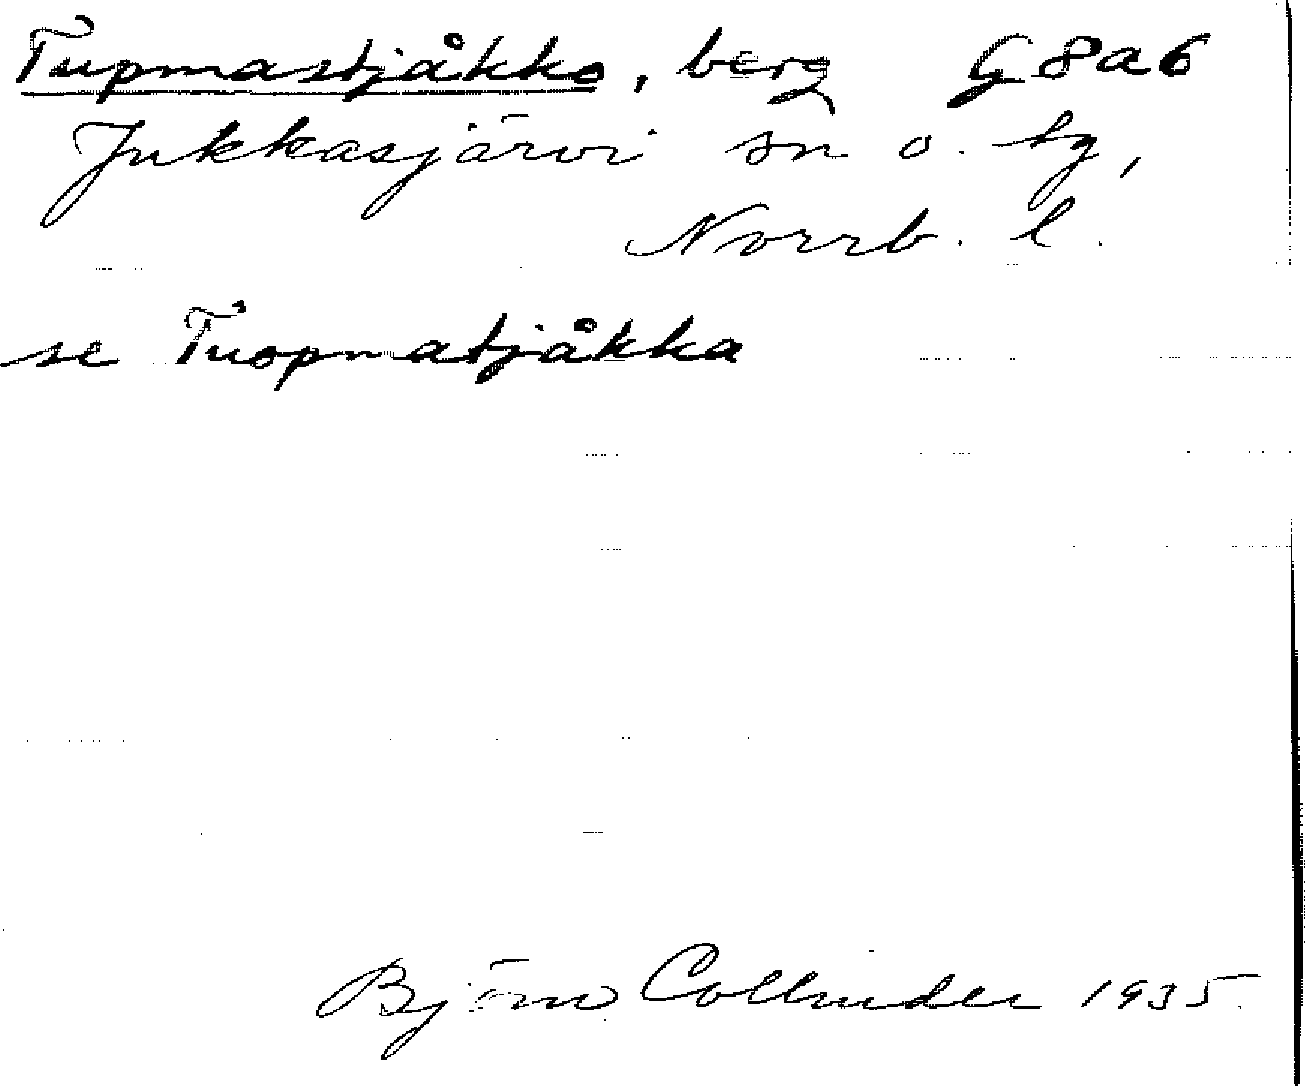 Tupmastjåkko, berg G 8 a 6
Jukkasjärvi sn o. tg,
Norrb. l.
se Tuopmatjåkka
Björn Collinder 1935.